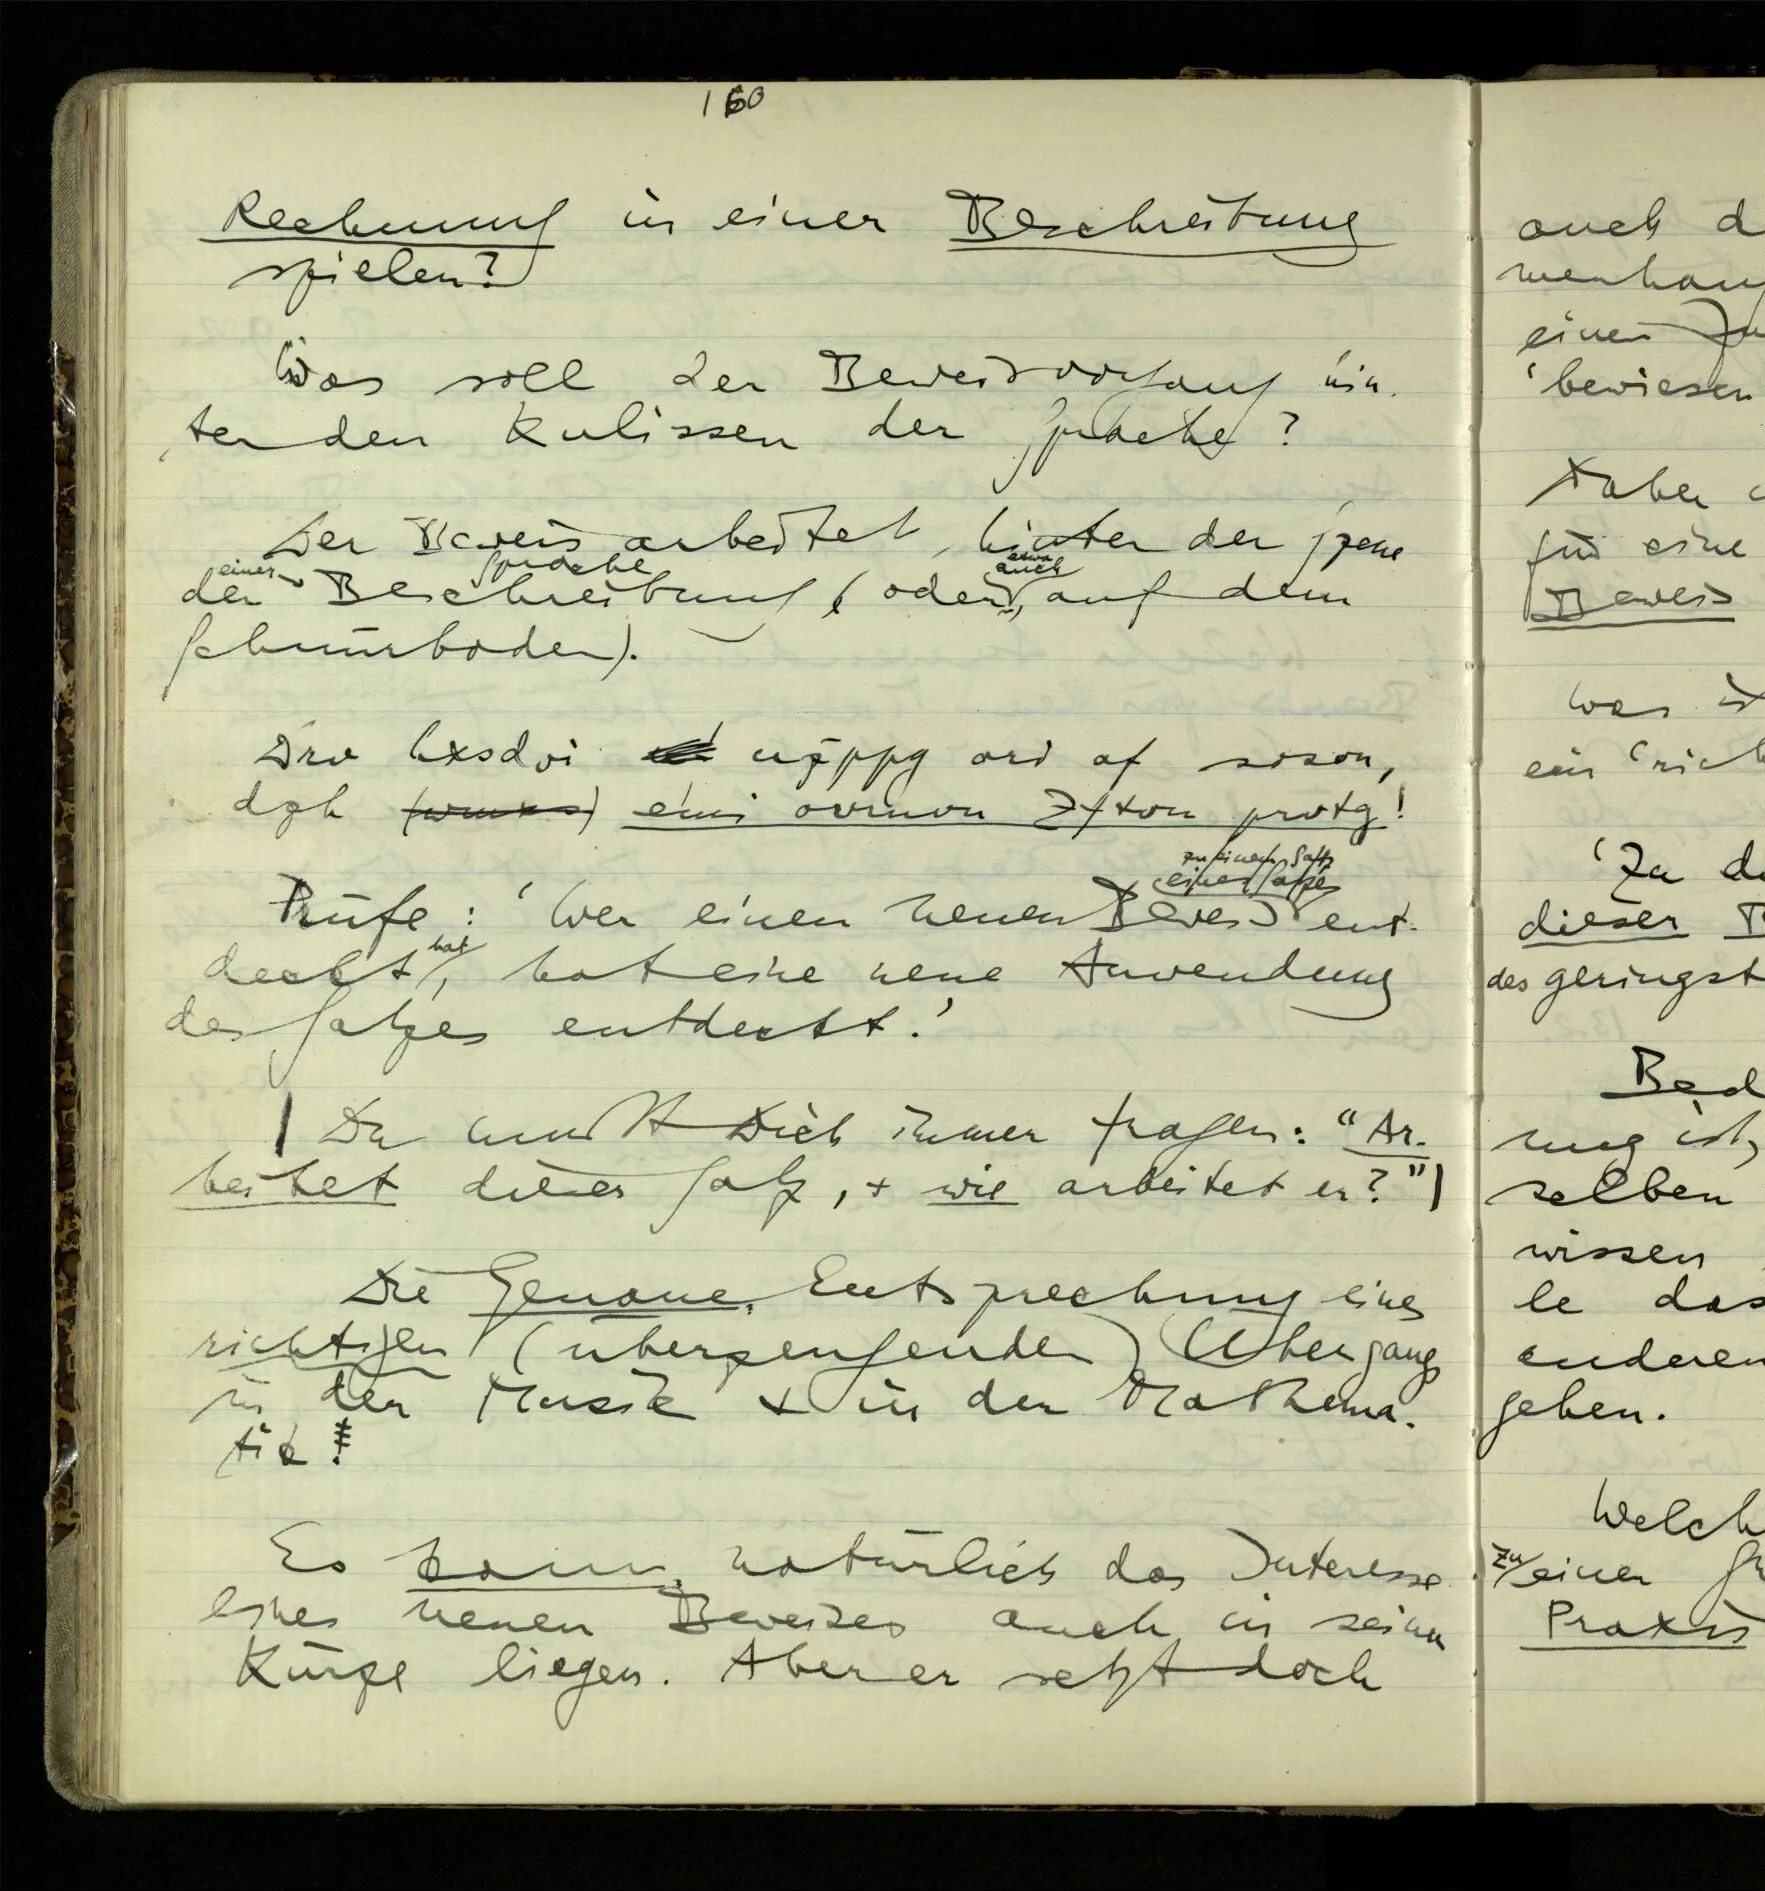 160
Rechnung in einer Beschreibung
spielen?
Was soll der Beweisvorgang hin-
ter den Kulissen der Sprache?
Der Beweis arbeitet hinter der Szene
einer Sprache etwa auch
der Beschreibung (oder, auf dem
Schnürboden).
Drv hxsdvi nöppg ori af soson,
dgh eini ovrmon Zfton protg!
zu einem Satz
eines Satzes
Prüfe: 'Wer einen neuen Beweis ent-
hat
deckt, hat eine neue Anwendung
des Satzes entdeckt.'
| Du mußt Dich immer fragen: "Ar-
beitet dieser Satz, + wie arbeitet er?" |
Die Genaue, Entsprechung eines
richtigen (überzeugenden) Übergangs
in der Musik + in der Mathema-
tik!
Es kann, natürlich das Interesse
eines neuen Beweises auch in seiner
Kürze liegen. Aber er setzt doch
auch d
menhang
einen Zu
'bewiesen
Daher
für eine
Beweis
Was ist
ein 'rich
'Zu d
dieser B
des geringst
Bed
nung ist,
selben
wissen
le das
anderen
geben.
Welch
zu
einer
Praxis